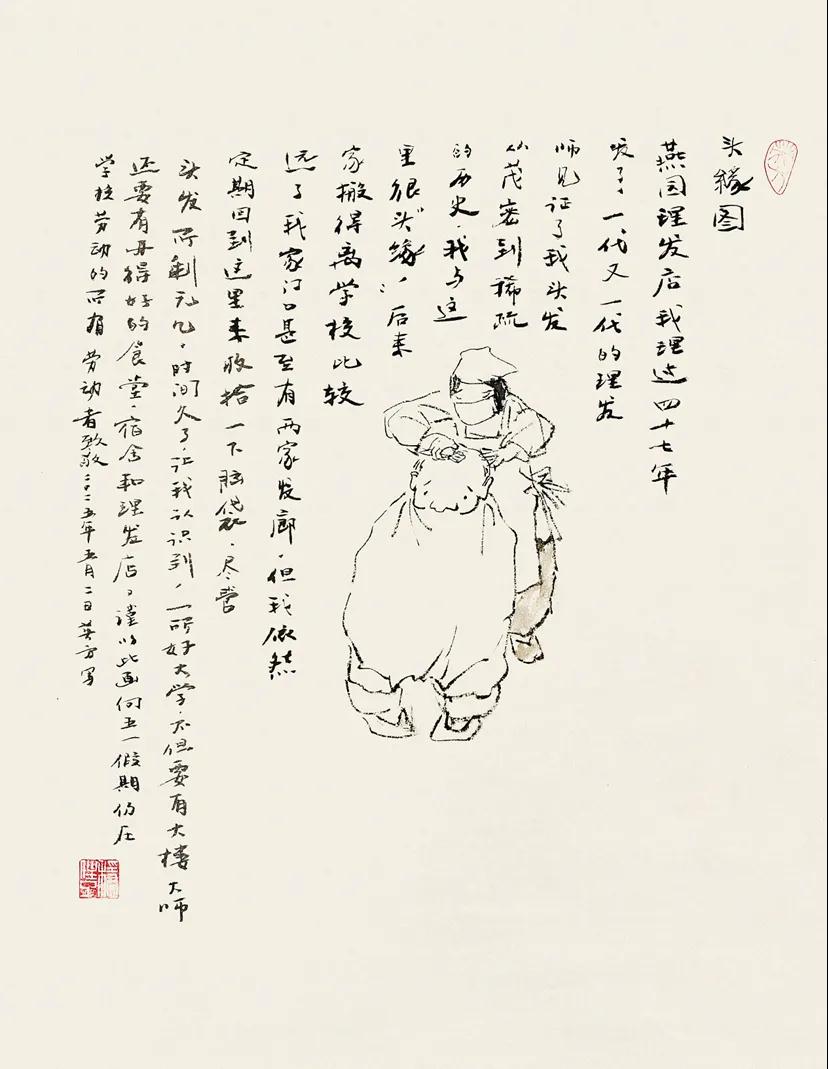 头缘图
燕园理发店我理过四十七年
发了，一代又一代的理发
师见证了我头发
从茂密到稀疏
的历史，我与这
里很“头缘”，后来
家搬得离学校比较
远了我家门口甚至有两家发廊，但我依然
定期回到这里来收拾一下脑袋，尽管
头发所剩无几，时间久了，让我认识到，一所好大学，不但要有大楼大师
还要有办得好的食堂，宿舍和理发店，谨以此画向五一假期仍在
学校劳动的所有劳动者致敬二〇二五年五月二日英方写